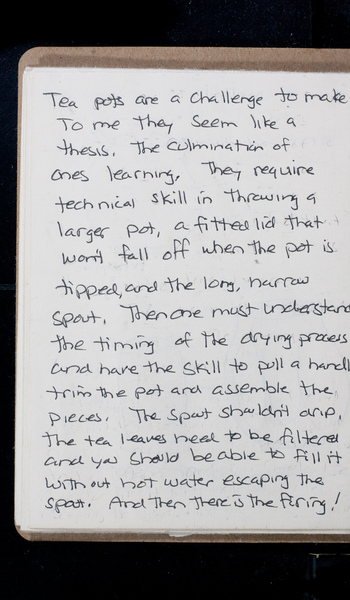 Tea pots are a challenge to make
To me they seem like a
thesis. The culmination of
ones learning. They require
technical skill in throwing a
larger pot, a fitted lid that
won't fall off when the pot is
tipped, and the long, narrow
spout. Then one must understand
the timing of the drying process
and have the skill to pull a handl
trim the pot and assemble the
pieces. The spout shouldn't drip,
the tea leaves need to be filtered
and you should be able to fill it
without hot water escaping the
spout. And then there is the firing!